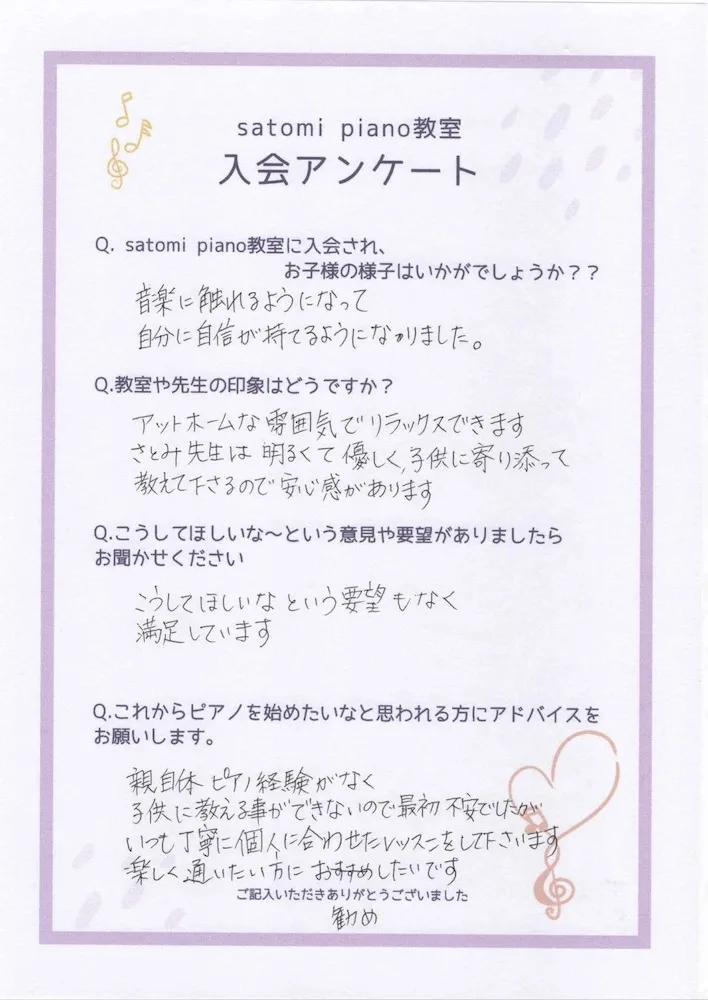 satomi piano教室
入会アンケート
Q. satomi piano教室に入会され、
お子様の様子はいかがでしょうか？？
音楽に触れるようになって
自分に自信が持てるようになりました。
Q.教室や先生の印象はどうですか？
アットホームな雰囲気でリラックスできます
さとみ先生は 明るくて優しく,子供に寄り添って
教えて下さるので安心感があります
Q.こうしてほしいな～という意見や要望がありましたら
お聞かせください
こうしてほしいな という要望もなく
満足しています
Q.これからピアノを始めたいなと思われる方にアドバイスを
お願いします。
親自体 ピアノ経験がなく
子供に教える事ができないので最初 不安でしたが
いつも丁寧に個人に合わせたレッスンをして下さいます
楽しく通いたい方に おすすめしたいです
ご記入いただきありがとうございました
勧め